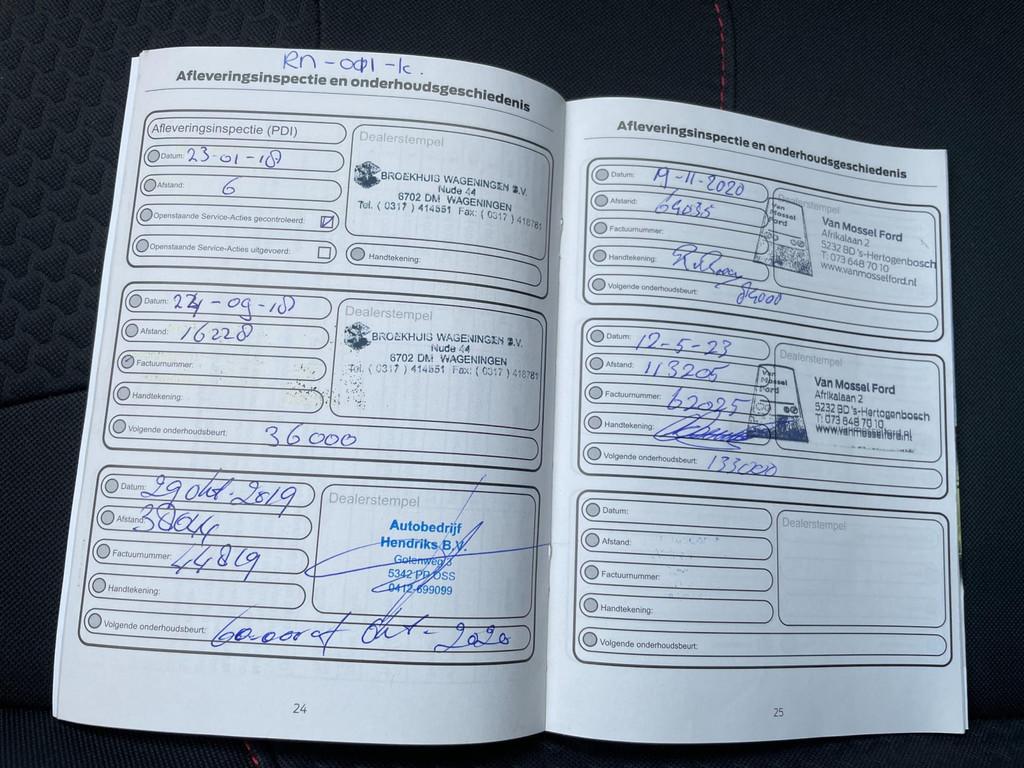 RN-001-K.
Afleveringsinspectie en onderhoudsgeschiedenis
Afleveringsinspectie (PDI)
Datum: 23-01-18
Afstand: 6
Openstaande Service-Acties gecontroleerd:
Openstaande Service-Acties uitgevoerd:
Dealerstempel
BROEKHUIS WAGENINGEN B.V.
Nude 44
6702 DM WAGENINGEN
Tel. ( 0317 ) 414551 Fax: ( 0317 ) 418761
Handtekening:
Datum: 24-09-18
Afstand: 16228
Factuurnummer:
Handtekening:
Volgende onderhoudsbeurt: 36000
Dealerstempel
BROEKHUIS WAGENINGEN B.V.
Nude 44
6702 DM WAGENINGEN
Tel. ( 0317 ) 414551 Fax: ( 0317 ) 418761
Datum: 29 okt. 2019
Afstand: 38044
Factuurnummer: 44819
Handtekening:
Volgende onderhoudsbeurt: 60.000 of Okt - 2020
Dealerstempel
Autobedrijf
Hendriks B.V.
Gotenweg 3
5342 PP OSS
0412-699099
24
Afleveringsinspectie en onderhoudsgeschiedenis
Datum: 19-11-2020
Afstand: 64035
Factuurnummer:
Handtekening:
Volgende onderhoudsbeurt: 84000
Dealerstempel
Van Mossel Ford
Van Mossel Ford
Afrikalaan 2
5232 BD 's-Hertogenbosch
T: 073 648 70 10
www.vanmosselford.nl
Datum: 12-5-23
Afstand: 113205
Factuurnummer: 62025
Handtekening:
Volgende onderhoudsbeurt: 133000
Dealerstempel
Van Mossel Ford
Van Mossel Ford
Afrikalaan 2
5232 BD 's-Hertogenbosch
T: 073 648 70 10
www.vanmosselford.nl
Datum:
Afstand:
Factuurnummer:
Handtekening:
Volgende onderhoudsbeurt:
Dealerstempel
25